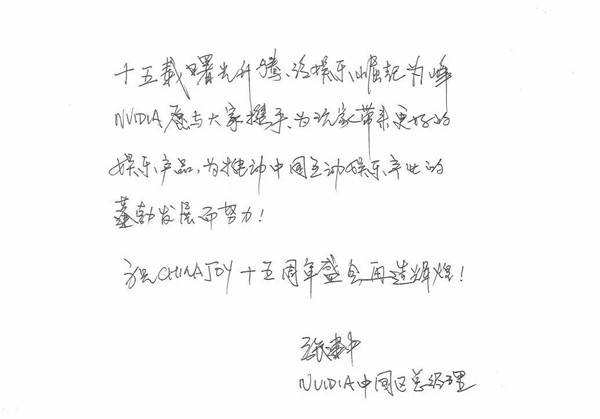 十五载曙光升腾、泛娱乐崛起为峰
NVIDIA愿与大家携手、为玩家带来更好的
娱乐产品,为推动中国互动娱乐产业的
蓬勃发展而努力!
祝CHINAJOY十五周年盛会再造辉煌!
张建中
NVIDIA中国区总经理